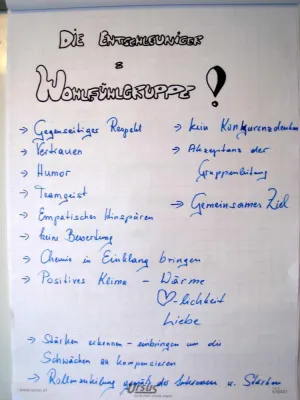 Die Entschleuniger
&
Wohlfühlgruppe !
→ Gegenseitiges Respekt
→ Vertrauen
→ Humor
→ Teamgeist
→ Empatisches Hinspüren
→ keine Bewertung
→ Chemie in Einklang bringen
→ Positives Klima - Wärme
♡-lichkeit
Liebe
→ kein Konkurenzdenken
→ Akzeptanz der
Gruppenleitung
→ Gemeinsames Ziel
→ Stärken erkennen - einbringen um die
Schwächen zu kompensieren
→ Rollenaufteilung gemäß der Interessen u. Stärken
Ursus